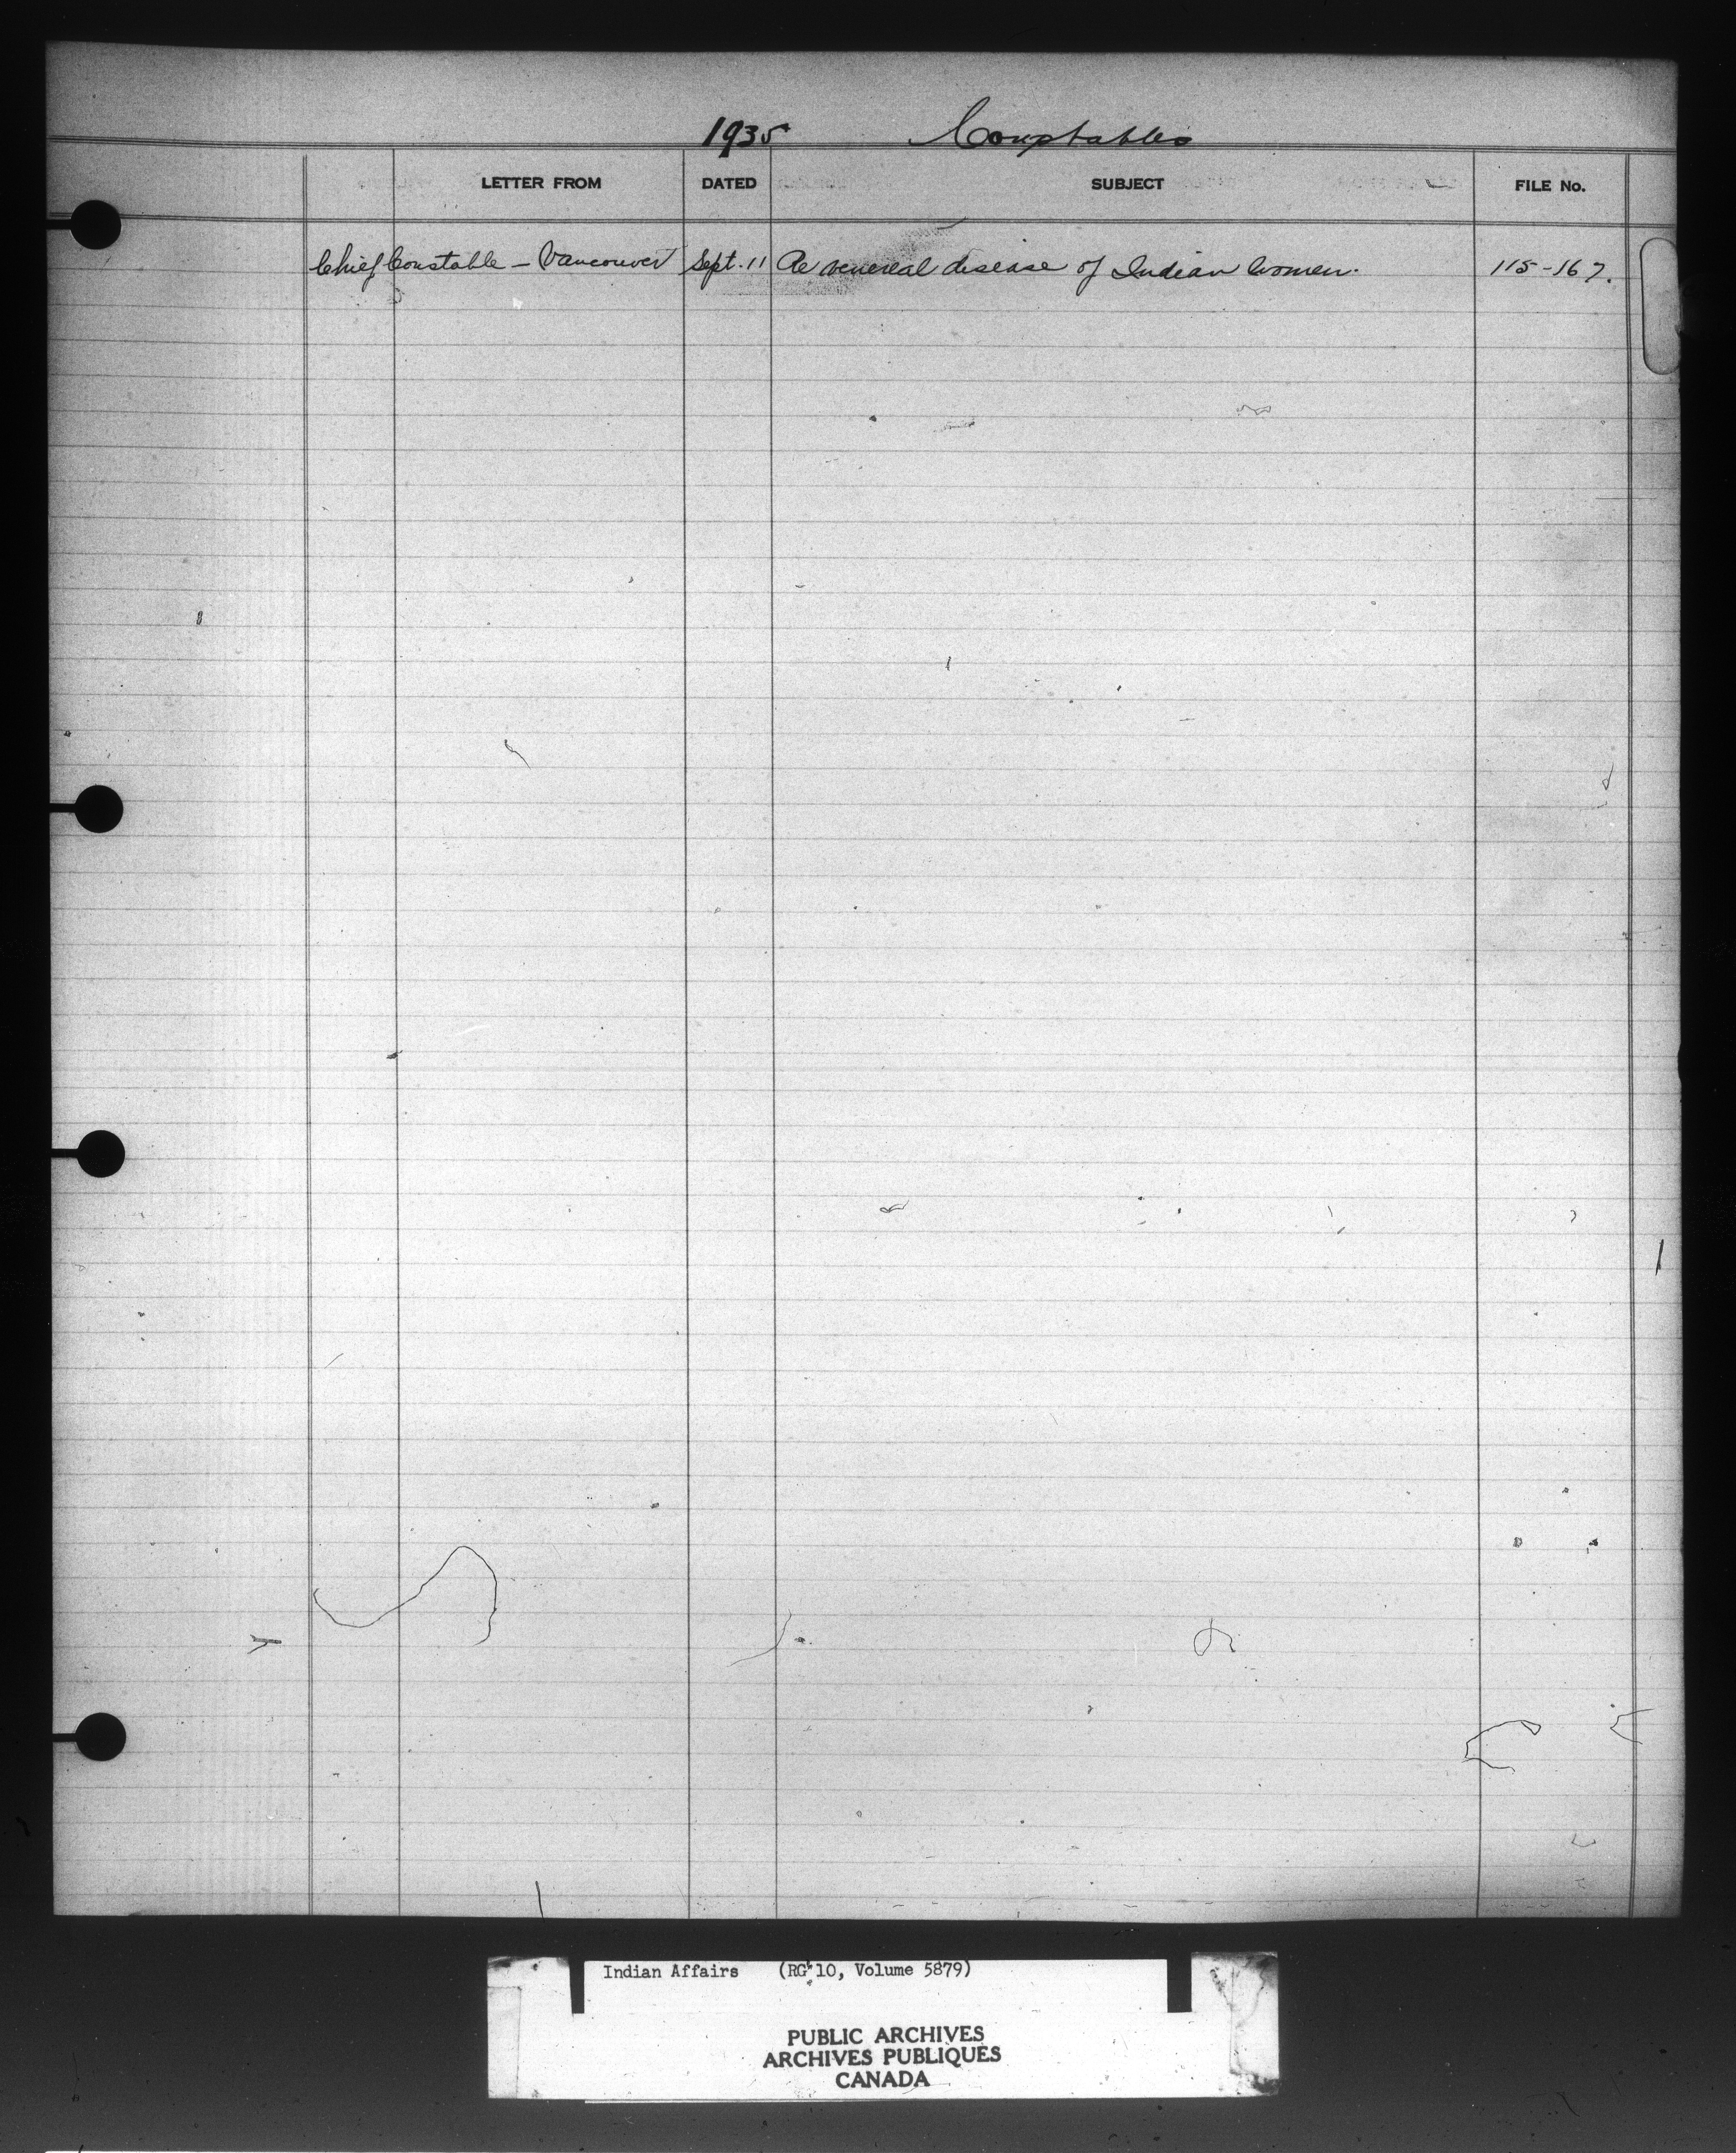 1935 Constables
LETTER FROM DATED SUBJECT FILE No.
Chief Constable - Vancouver Sept. 11 Re venereal disease of Indian Women. 115-167.
Indian Affairs (RG 10, Volume 5879)
PUBLIC ARCHIVES
ARCHIVES PUBLIQUES
CANADA